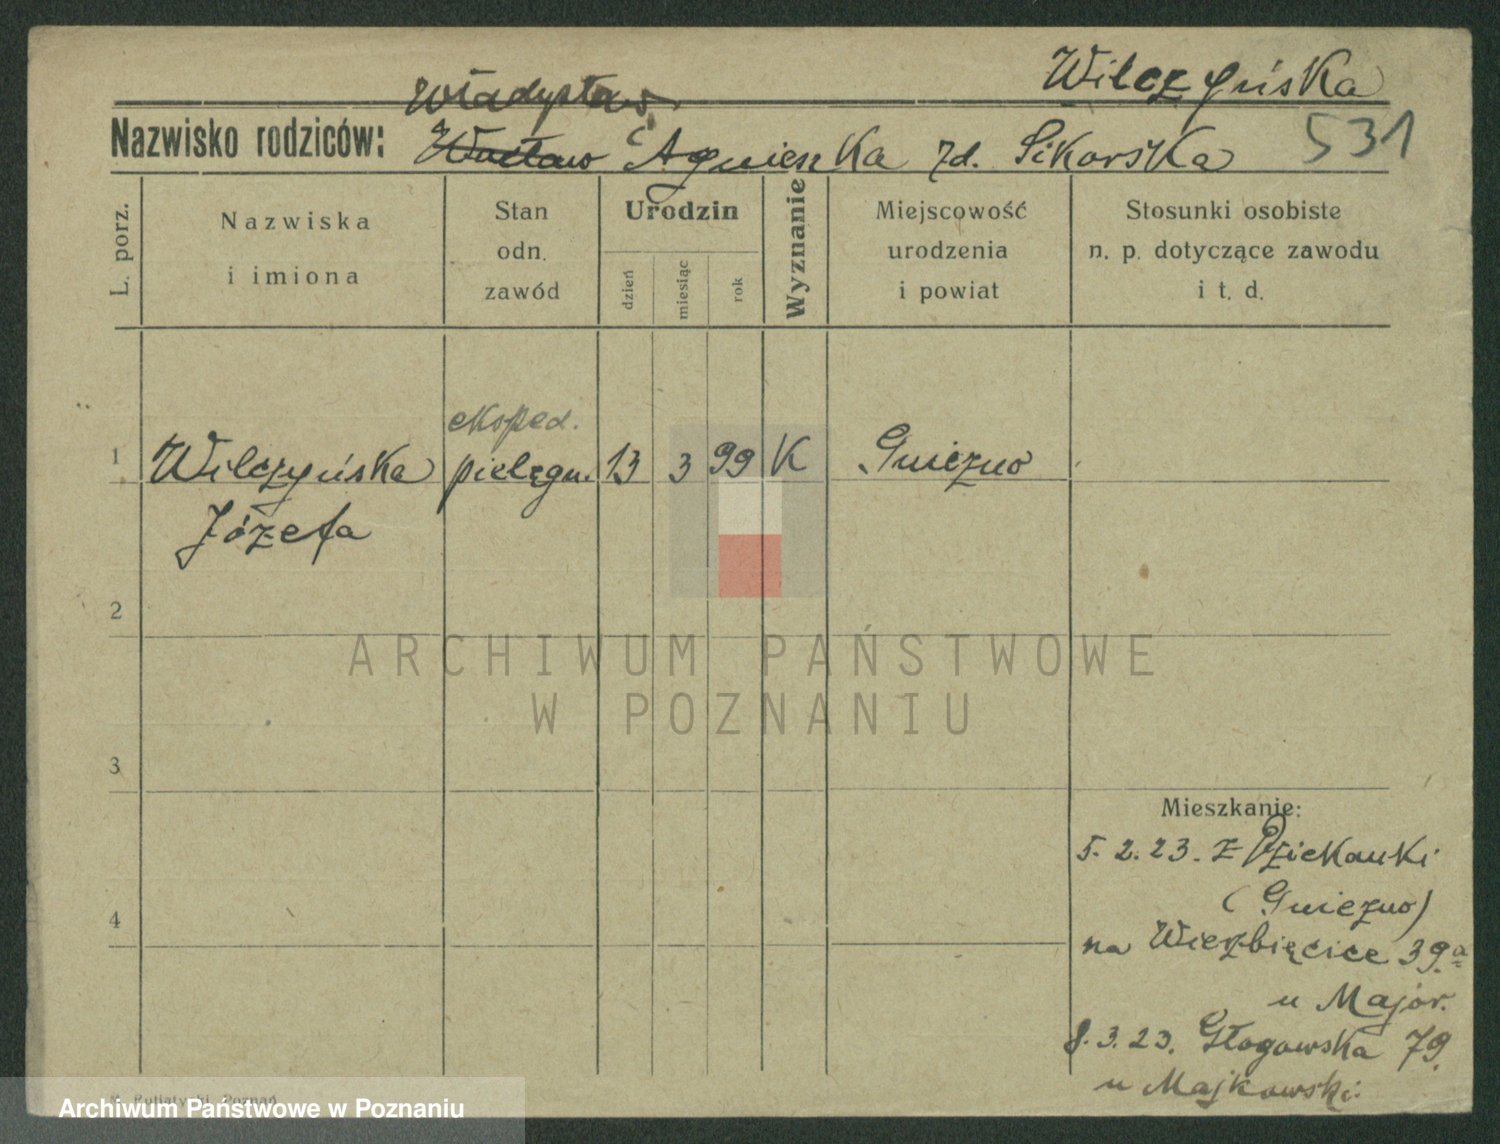 Wilczyńska
Władysław
Nazwisko rodziców: Wacław Agnieszka zd. Sikorska 531
L. porz.
Nazwiska
i imiona
Stan
odn.
zawód
Urodzin
dzień
miesiąc
rok
Wyznanie
Miejscowość
urodzenia
i powiat
Stosunki osobiste
n. p. dotyczące zawodu
i t. d.
eksped.
1 Wilczyńska pielęgn. 13 3 99 K Gniezno
Józefa
2
ARCHIWUM PAŃSTWOWE
W POZNANIU
3
Mieszkanie:
5.2.23. z Dziekanki
(Gniezno)
4
na Wierzbięcice 39.a
u Major.
8.3.23. Głogowska 79.
u Majkowski.
Poznań
Archiwum Państwowe w Poznaniu